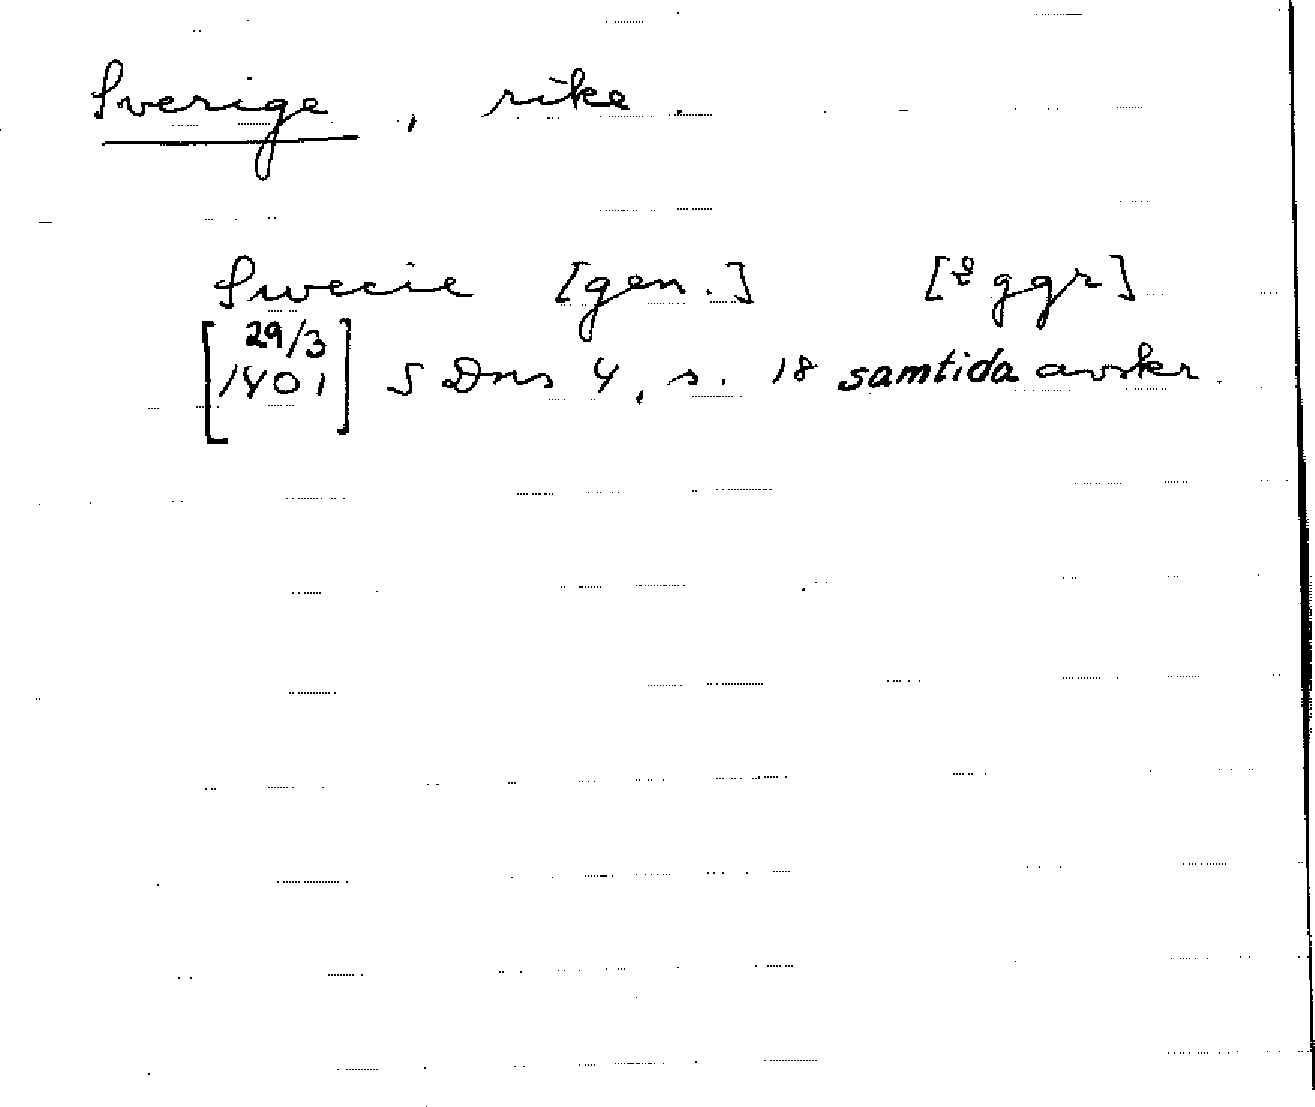 Sverige, rike.
Swecie [gen.] [2 ggr]
[29/3
1401] S Dns 4, s. 18 samtida avskr.